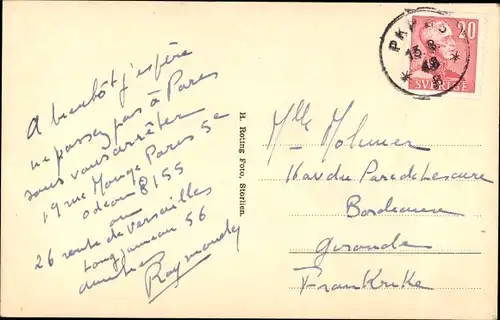 A bientôt j'espère
ne passez pas à Paris
sans vous arrêter
19 rue Monge Paris 5e
odeon 8155
ou
26 route de Versailles
Longjumeau 56
amitiés
Raymonde
H. Roting Foto, Storlien.
PK
13.8
48
20
SVERIGE
Mlle Molinier
16 av du Parc de Lescure
Bordeaux
Gironde
Frankrike